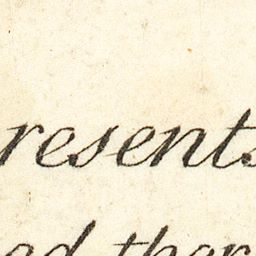 resents
ed ther